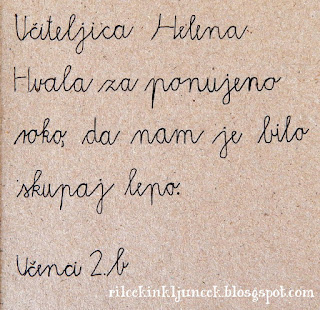 Učiteljica Helena
Hvala za ponujeno
roko, da nam je bilo
skupaj lepo.
Učenci 2.b
rilcekinkljuncek.blosgspot.com